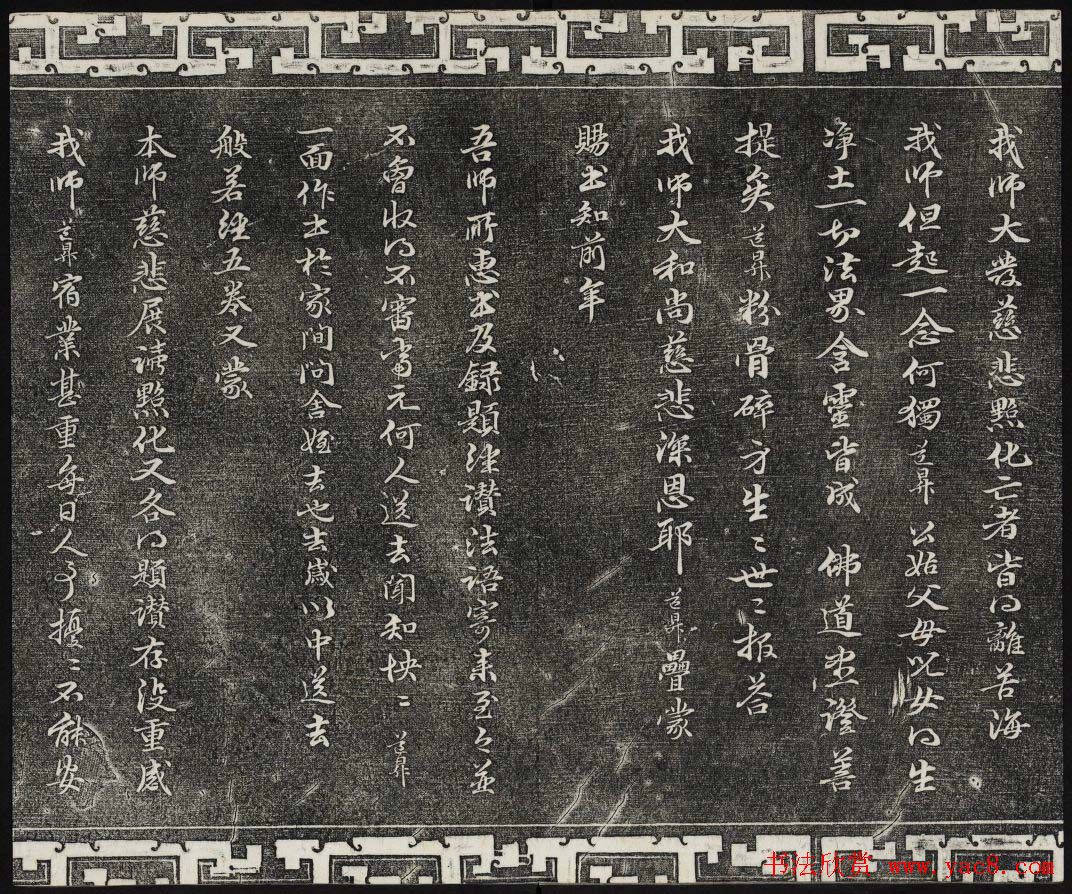 我師大發慈悲點化亡者皆得離苦海
我師但起一念何獨道昇公姑父母兒女得生
淨土一切法界含靈皆成 佛道盡證菩
提矣道昇粉骨碎身生〻世〻报答
我師大和尚慈悲深恩耶道昇疊蒙
賜書知前年
吾師所惠書及録題經讃法語寄来至今並
不曾收得不審當元何人送去聞知怏〻道昇
一面作書於家間问舍姪去也去歲以中送去
般若經五卷又蒙
本師慈悲展讀點化又各得題讃存没重感
我師道昇宿業甚重每日人事擾〻不能安
书法欣赏 www.yac8.com